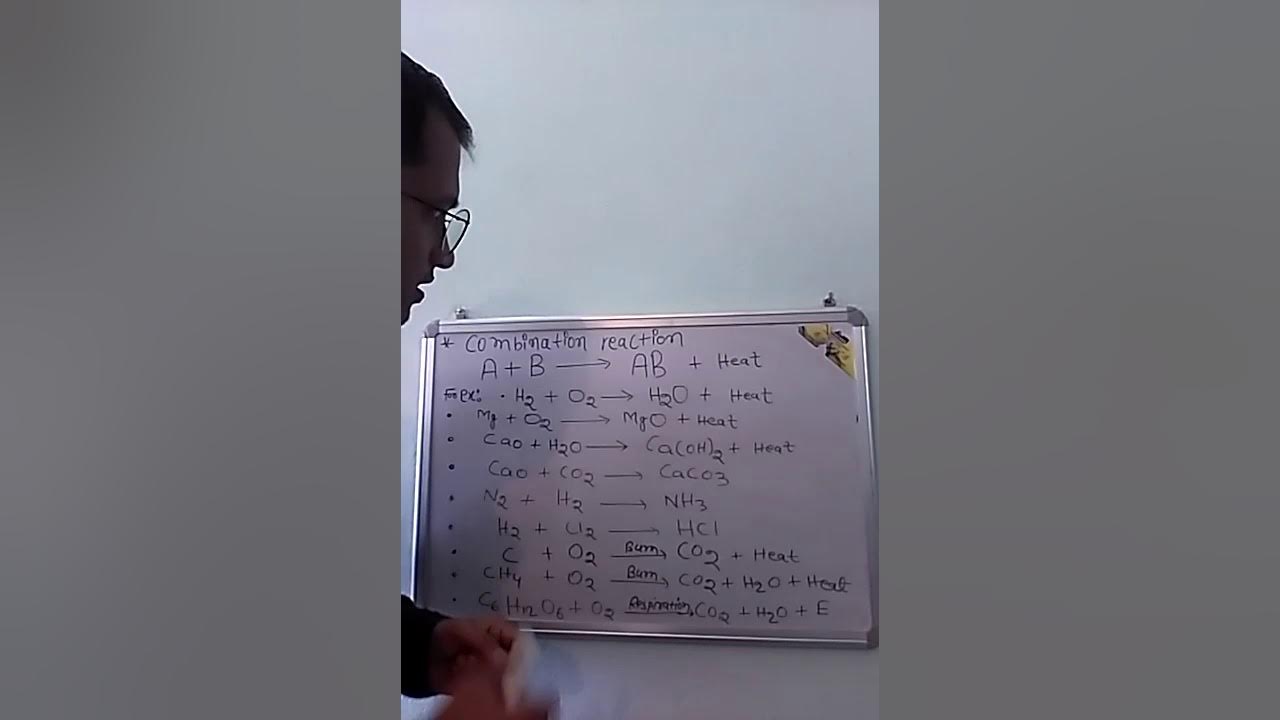 * Combination reaction
A + B ⟶ AB + Heat
For ex: • H₂ + O₂ ⟶ H₂O + Heat
• Mg + O₂ ⟶ MgO + Heat
• CaO + H₂O ⟶ Ca(OH)₂ + Heat
• CaO + CO₂ ⟶ CaCO₃
• N₂ + H₂ ⟶ NH₃
• H₂ + Cl₂ ⟶ HCl
• C + O₂ ⟶ Burn CO₂ + Heat
• CH₄ + O₂ ⟶ Burn CO₂ + H₂O + Heat
• C₆H₁₂O₆ + O₂ ⟶ Respiration CO₂ + H₂O + E